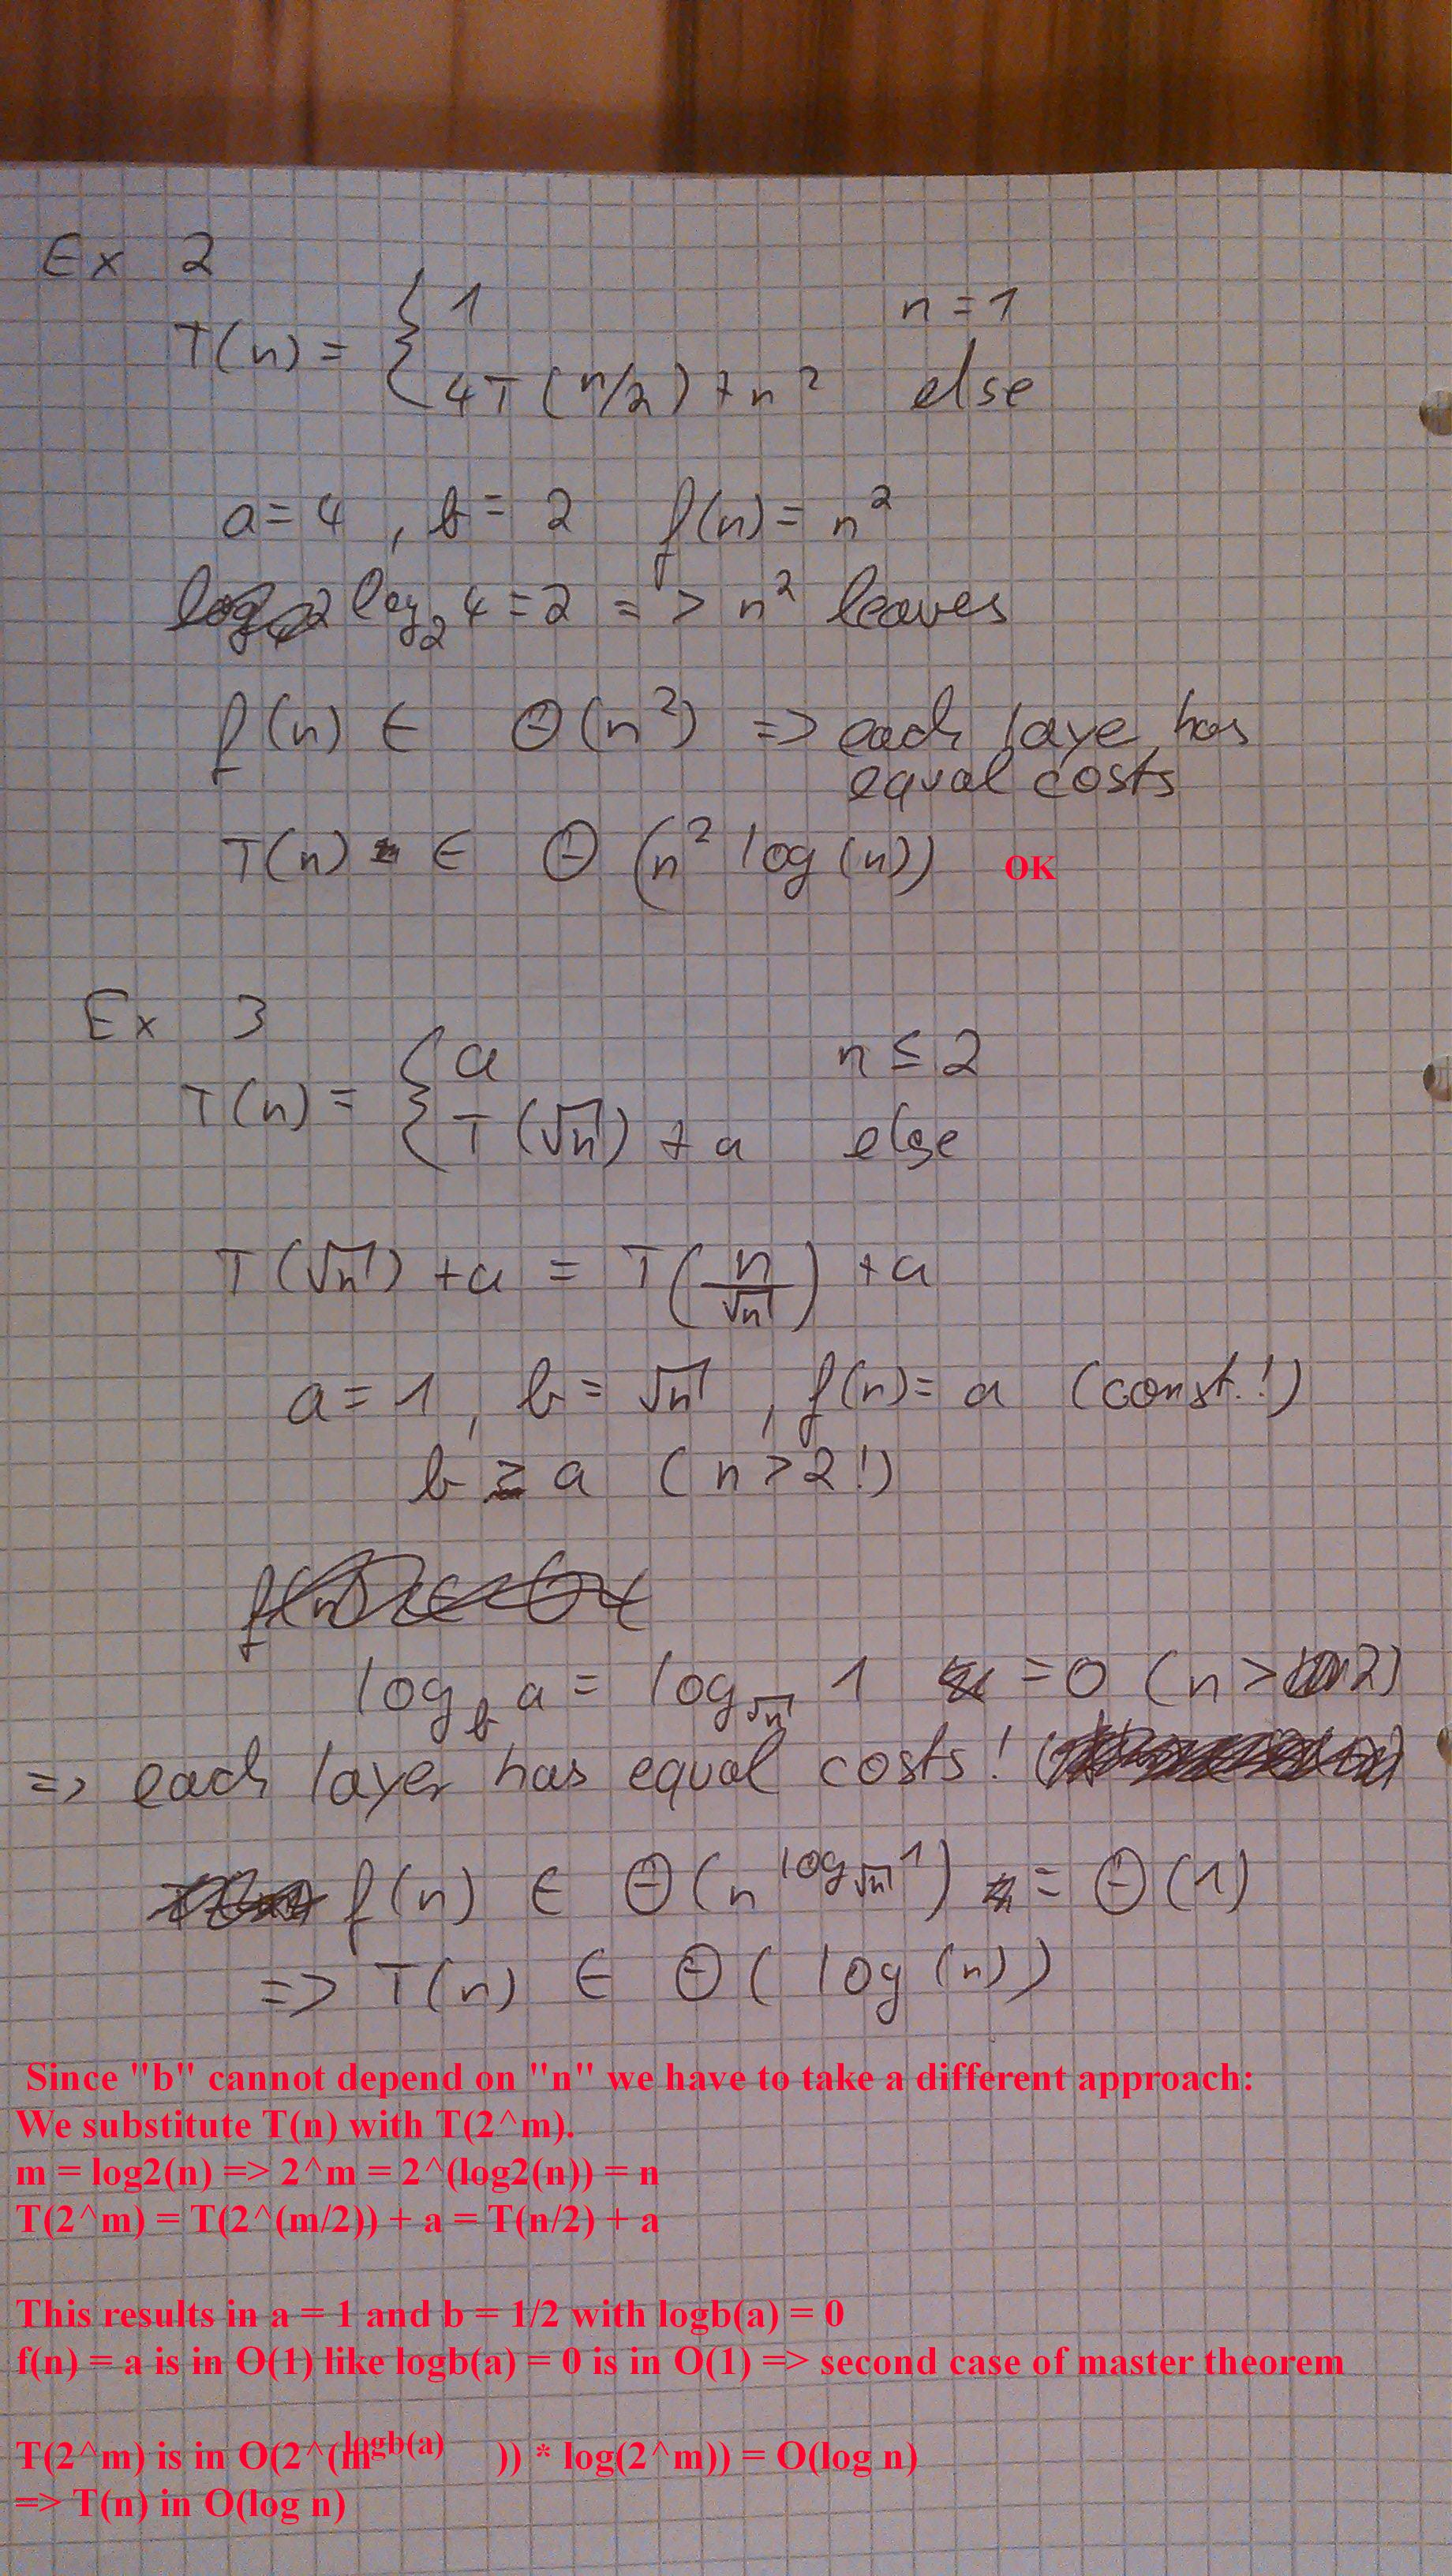 Ex 2
T(n) = { 1 n = 1
4T(n/2) + n² else
a = 4 , b = 2 f(n) = n²
log₂ 4 = 2 => n² leaves
f(n) ∈ Θ(n²) => each laye has
equal costs
T(n) ∈ Θ(n² log(n)) OK
Ex 3
T(n) = { a n ≤ 2
T(√n) + a else
T(√n) + a = T(n/√n) + a
a = 1 , b = √n , f(n) = a (const.!)
b ≥ a (n > 2!)
log_b a = log_√n 1 = 0 (n > 2)
=> each layer has equal costs!
f(n) ∈ Θ(n^(log_√n 1)) = Θ(1)
=> T(n) ∈ Θ(log(n))
Since "b" cannot depend on "n" we have to take a different approach:
We substitute T(n) with T(2^m).
m = log2(n) => 2^m = 2^(log2(n)) = n
T(2^m) = T(2^(m/2)) + a = T(n/2) + a
This results in a = 1 and b = 1/2 with logb(a) = 0
f(n) = a is in O(1) like logb(a) = 0 is in O(1) => second case of master theorem
T(2^m) is in O(2^(m logb(a) )) * log(2^m)) = O(log n)
=> T(n) in O(log n)